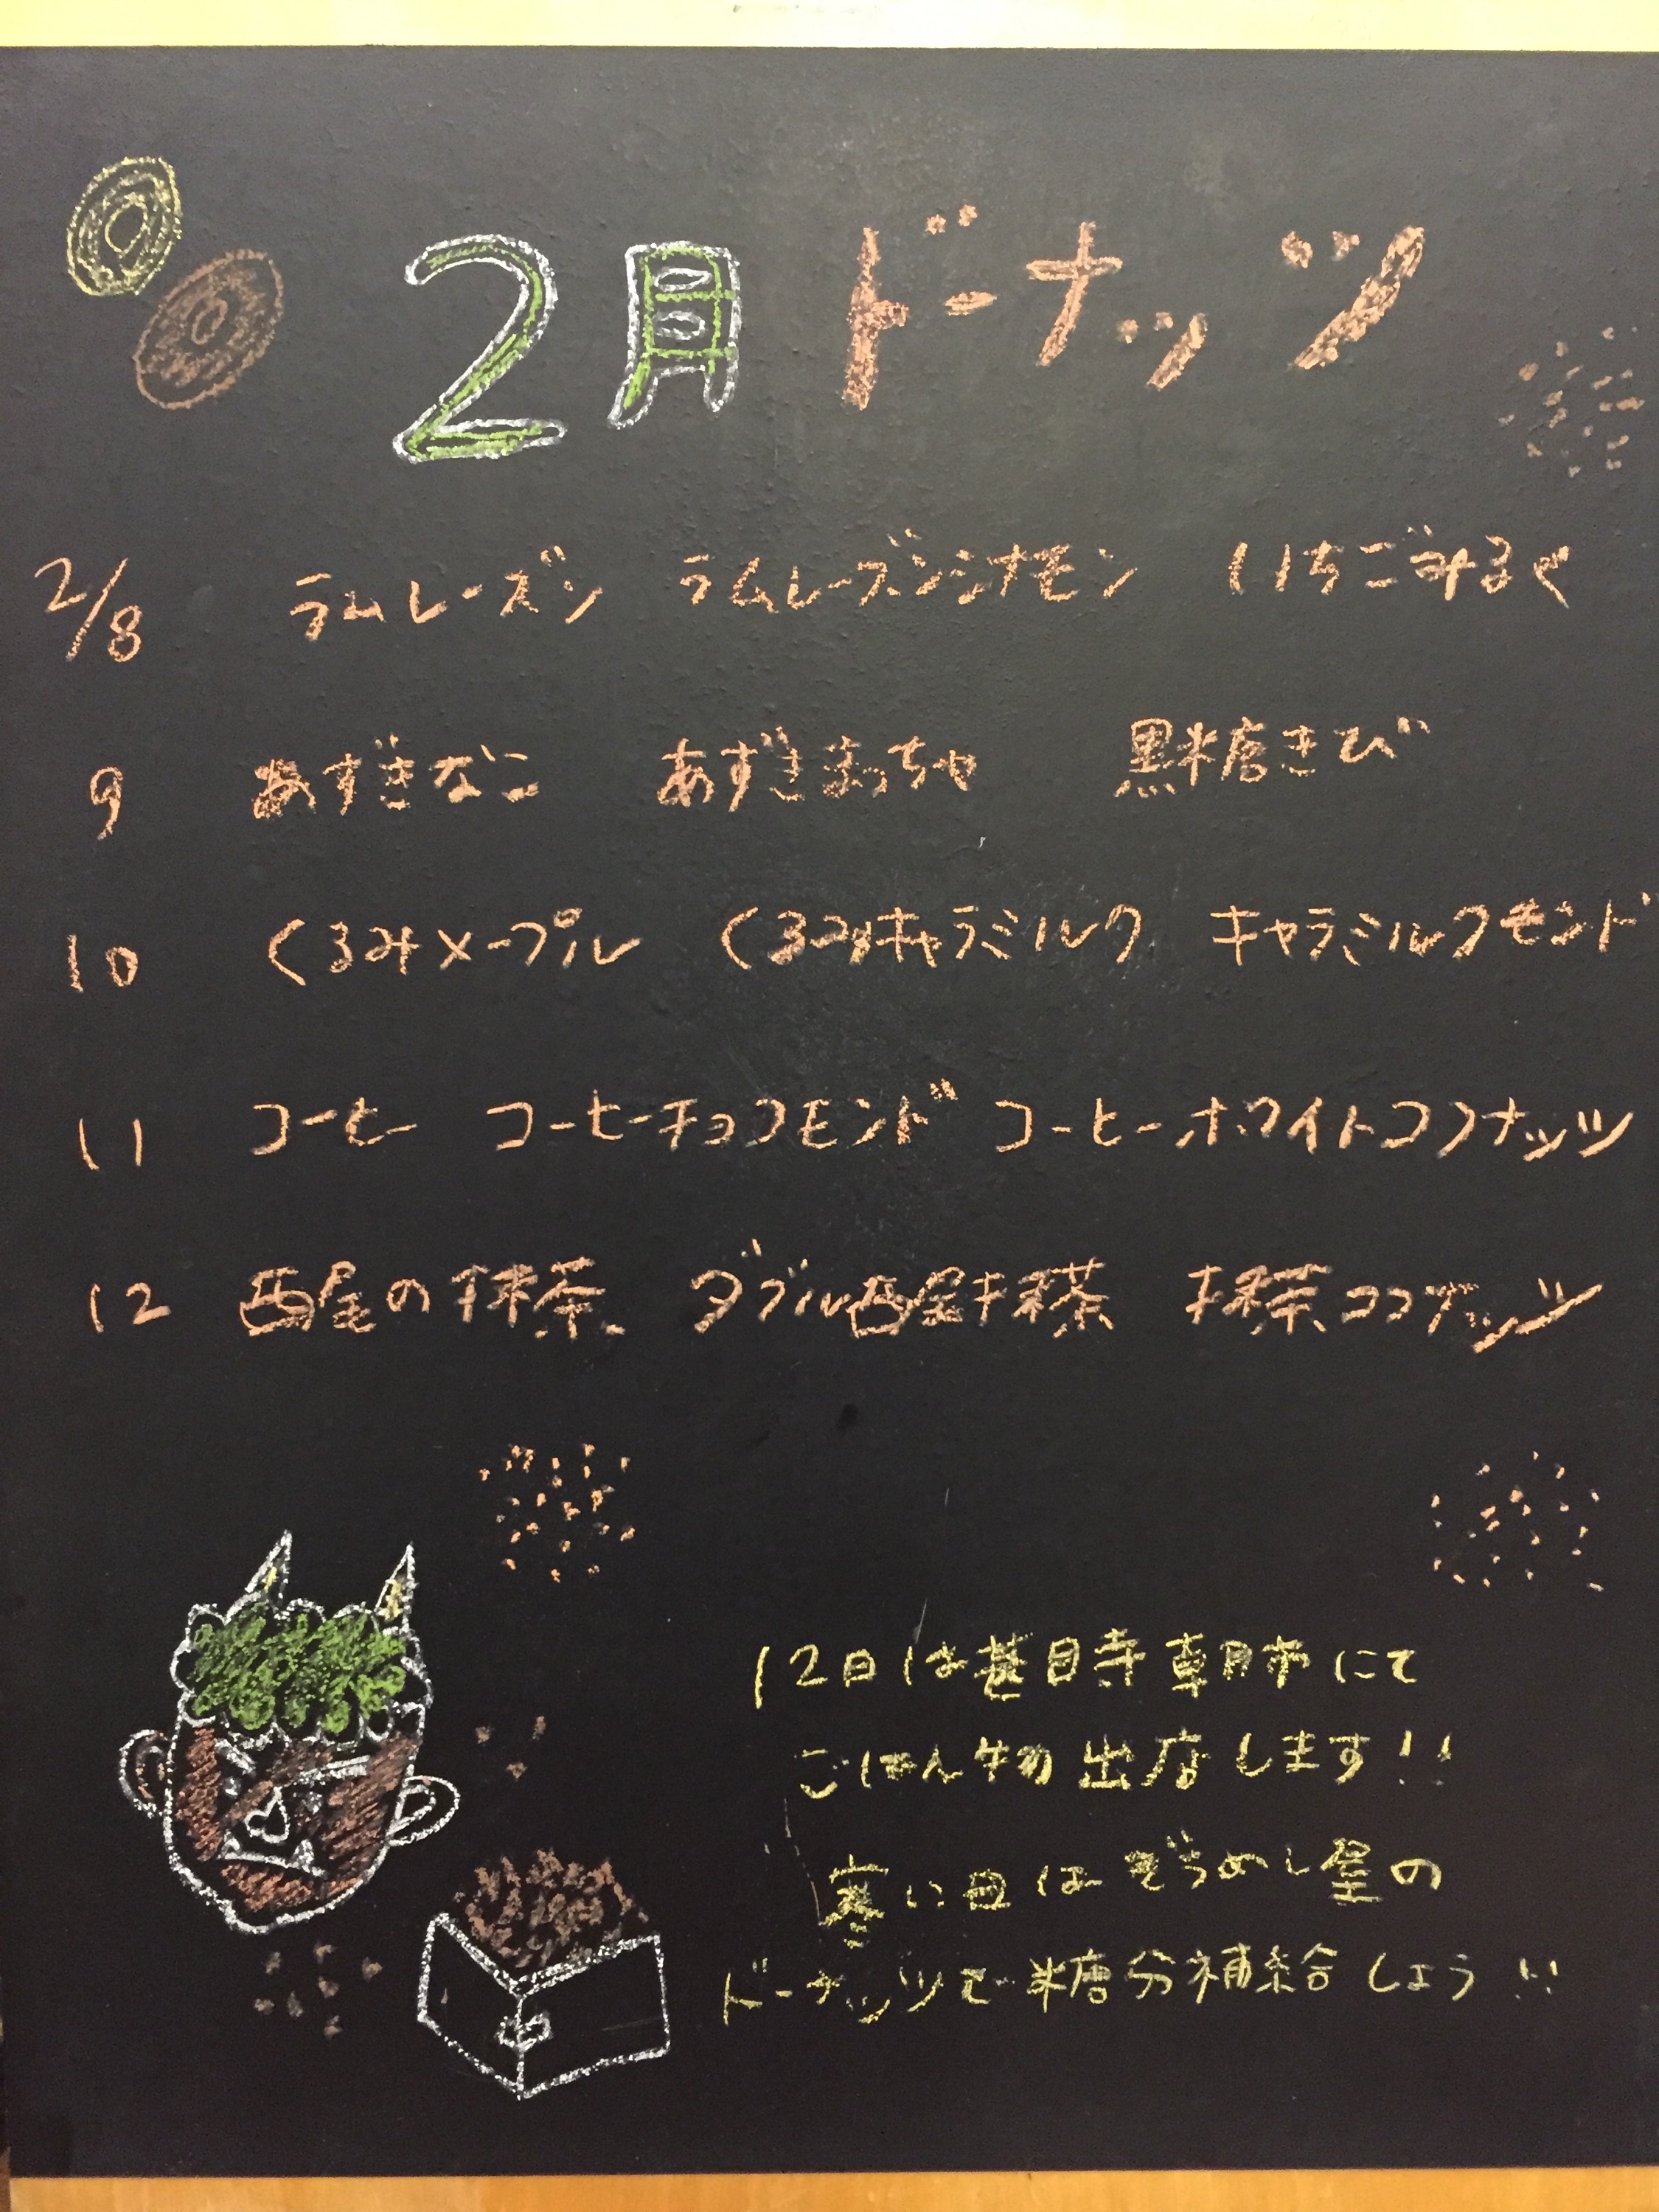 2月ドーナッツ
2/8 ラムレーズン ラムレーズンシナモン いちごみるく
9 あずきなこ あずきまっちゃ 黒糖きび
10 くるみメープル くるみキャラミルク キャラミルクモンド
11 コーヒー コーヒーチョコモンド コーヒーホワイトココナッツ
12 西尾の抹茶 ダブル西尾抹茶 抹茶ココナッツ
12日は甚目寺朝市にて
ごはん物出店します!!
寒い日はぞうめし屋の
ドーナッツで糖分補給しよう!!